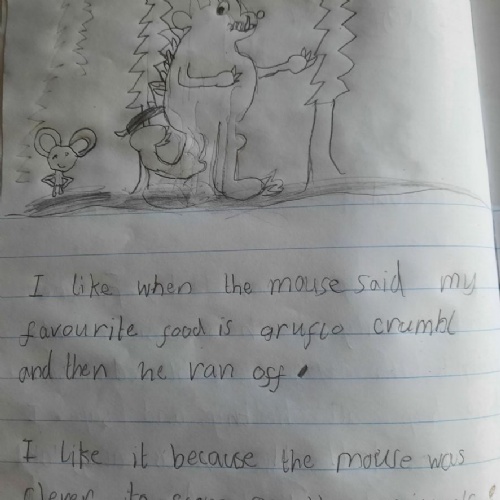 I like when the mouse said my
favourite food is gruflo crumbl
and then he ran off.
I like it because the mouse was
clever to